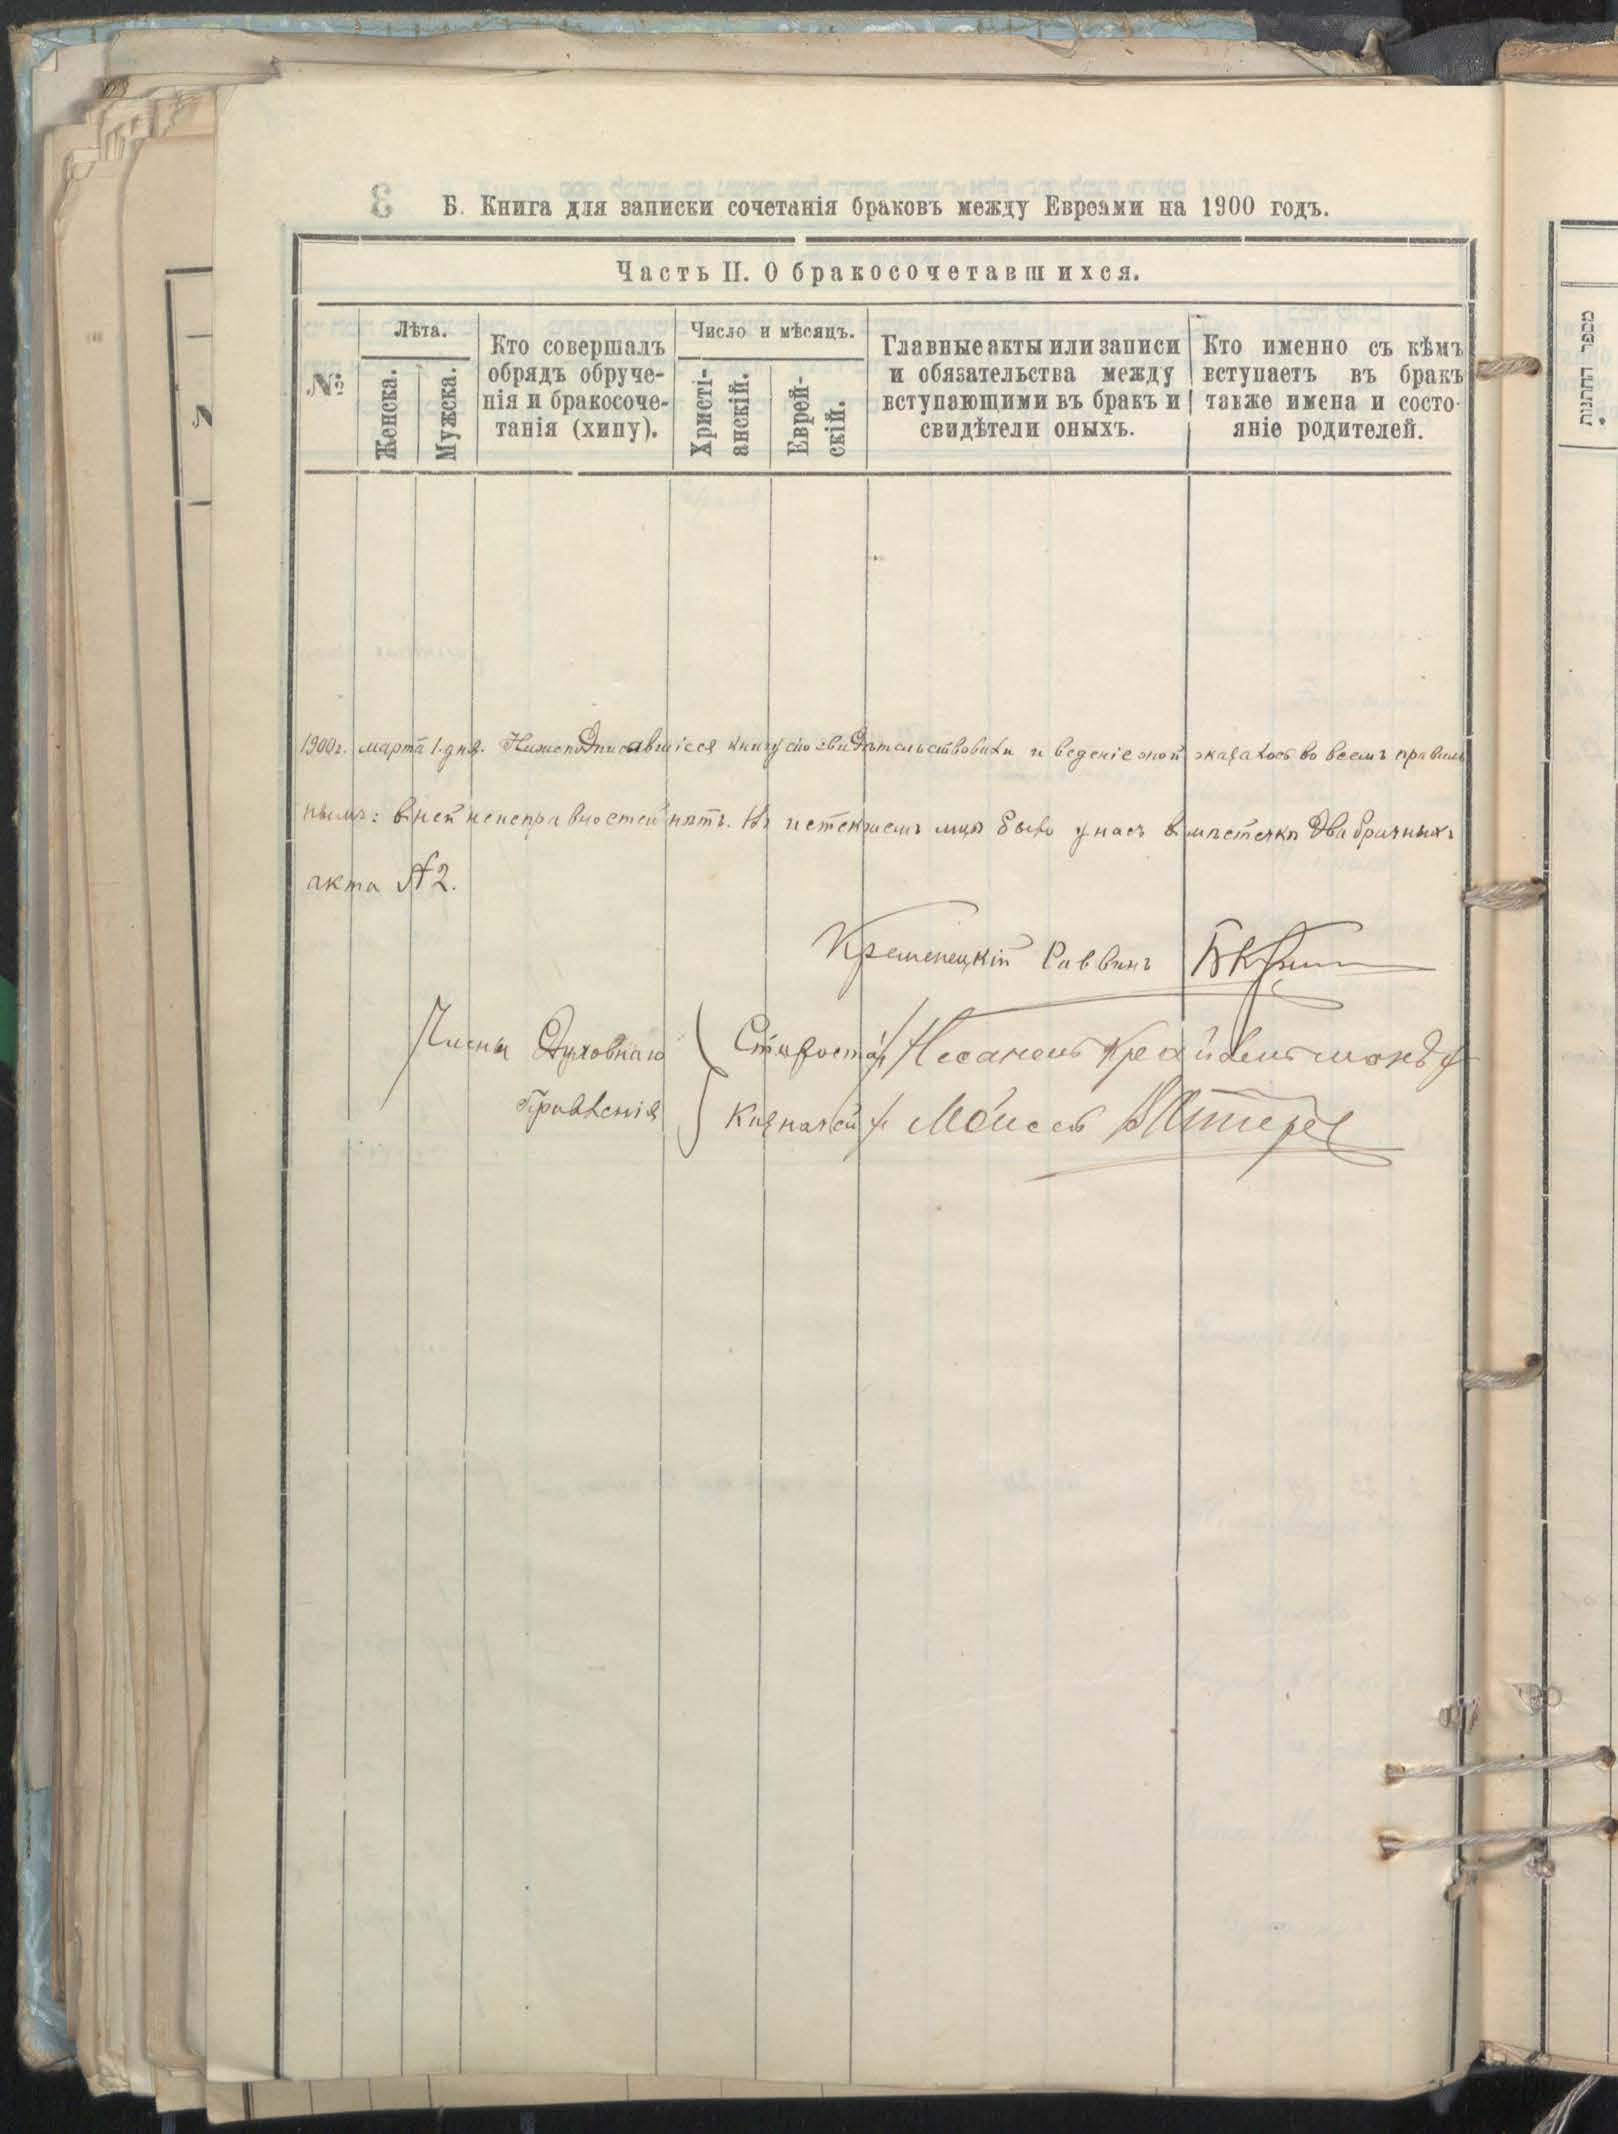 Б. Книга для записки сочетанія браковъ между Евреами на 1900 годъ.
Часть II. О бракосочетавшихся.
№
Лѣта.
Женска.
Мужска.
Кто совершалъ
обрядъ обруче-
нія и бракосоче-
танія (хипу).
Число и мѣсяцъ.
Христі-
анскій.
Еврей-
скій.
Главные акты или записи
и обязательства между
вступающими въ бракъ и
свидѣтели оныхъ.
Кто именно съ кѣмъ
вступаетъ въ бракъ
также имена и состо-
яніе родителей.
1900г. марта 1. дня. Нижеподписавшіеся книгу сію свидѣтельствовали и веденіе оной оказалось во всемъ правиль
нымъ: в ней неисправностей нѣтъ. Въ истекшемъ мцѣ было у насъ в мѣстечкѣ два брачныхъ
акта № 2.
Кременецкій Раввинъ
Члены Духовнаго
Правленія
Староста
Казначей Мойсей
מספר החתונות